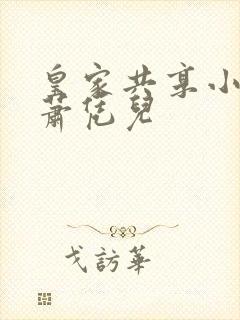 皇家共享小
蕭恁兒
戈訪華